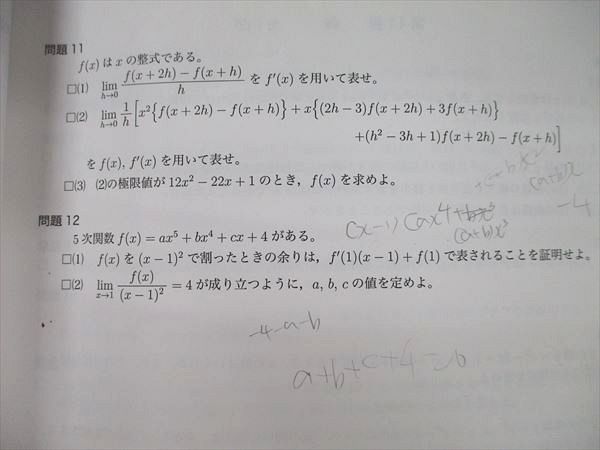 問題 11
f(x) は x の整式である。
□(1) lim_{h→0} \frac{f(x+2h)-f(x+h)}{h} を f′(x) を用いて表せ。
□(2) lim_{h→0} \frac{1}{h}[x²{f(x+2h)-f(x+h)}+x{(2h-3)f(x+2h)+3f(x+h)}
+(h²-3h+1)f(x+2h)-f(x+h)]
を f(x), f′(x) を用いて表せ。
□(3) (2)の極限値が 12x²-22x+1 のとき，f(x) を求めよ。
問題 12
5次関数 f(x)=ax⁵+bx⁴+cx+4 がある。
□(1) f(x) を (x-1)² で割ったときの余りは，f′(1)(x-1)+f(1) で表されることを証明せよ。
□(2) lim_{x→1} \frac{f(x)}{(x-1)²}=4 が成り立つように，a, b, c の値を定めよ。
(x-1)(ax4+bx³
(a+b)x³
-4
-4-a-b
a+b+c+4=0